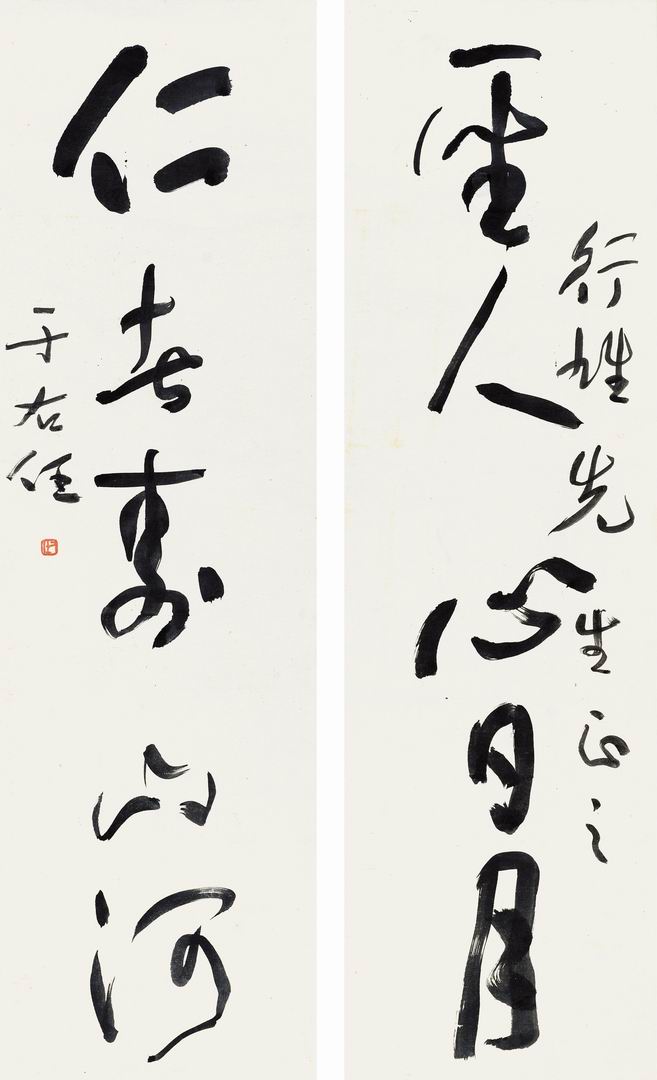 行健先生正之
聖人心日月
仁者壽山河
于右任